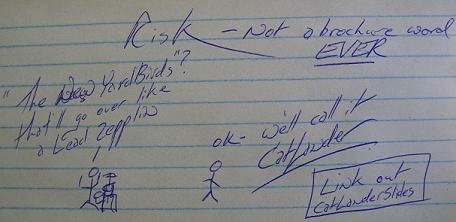 Risk - Not a brochure word
EVER
"The New YardBirds"?
that'll go over like
a Lead Zepplin
ok - we'll call it
CatLander
Link out
CatLanderSlides